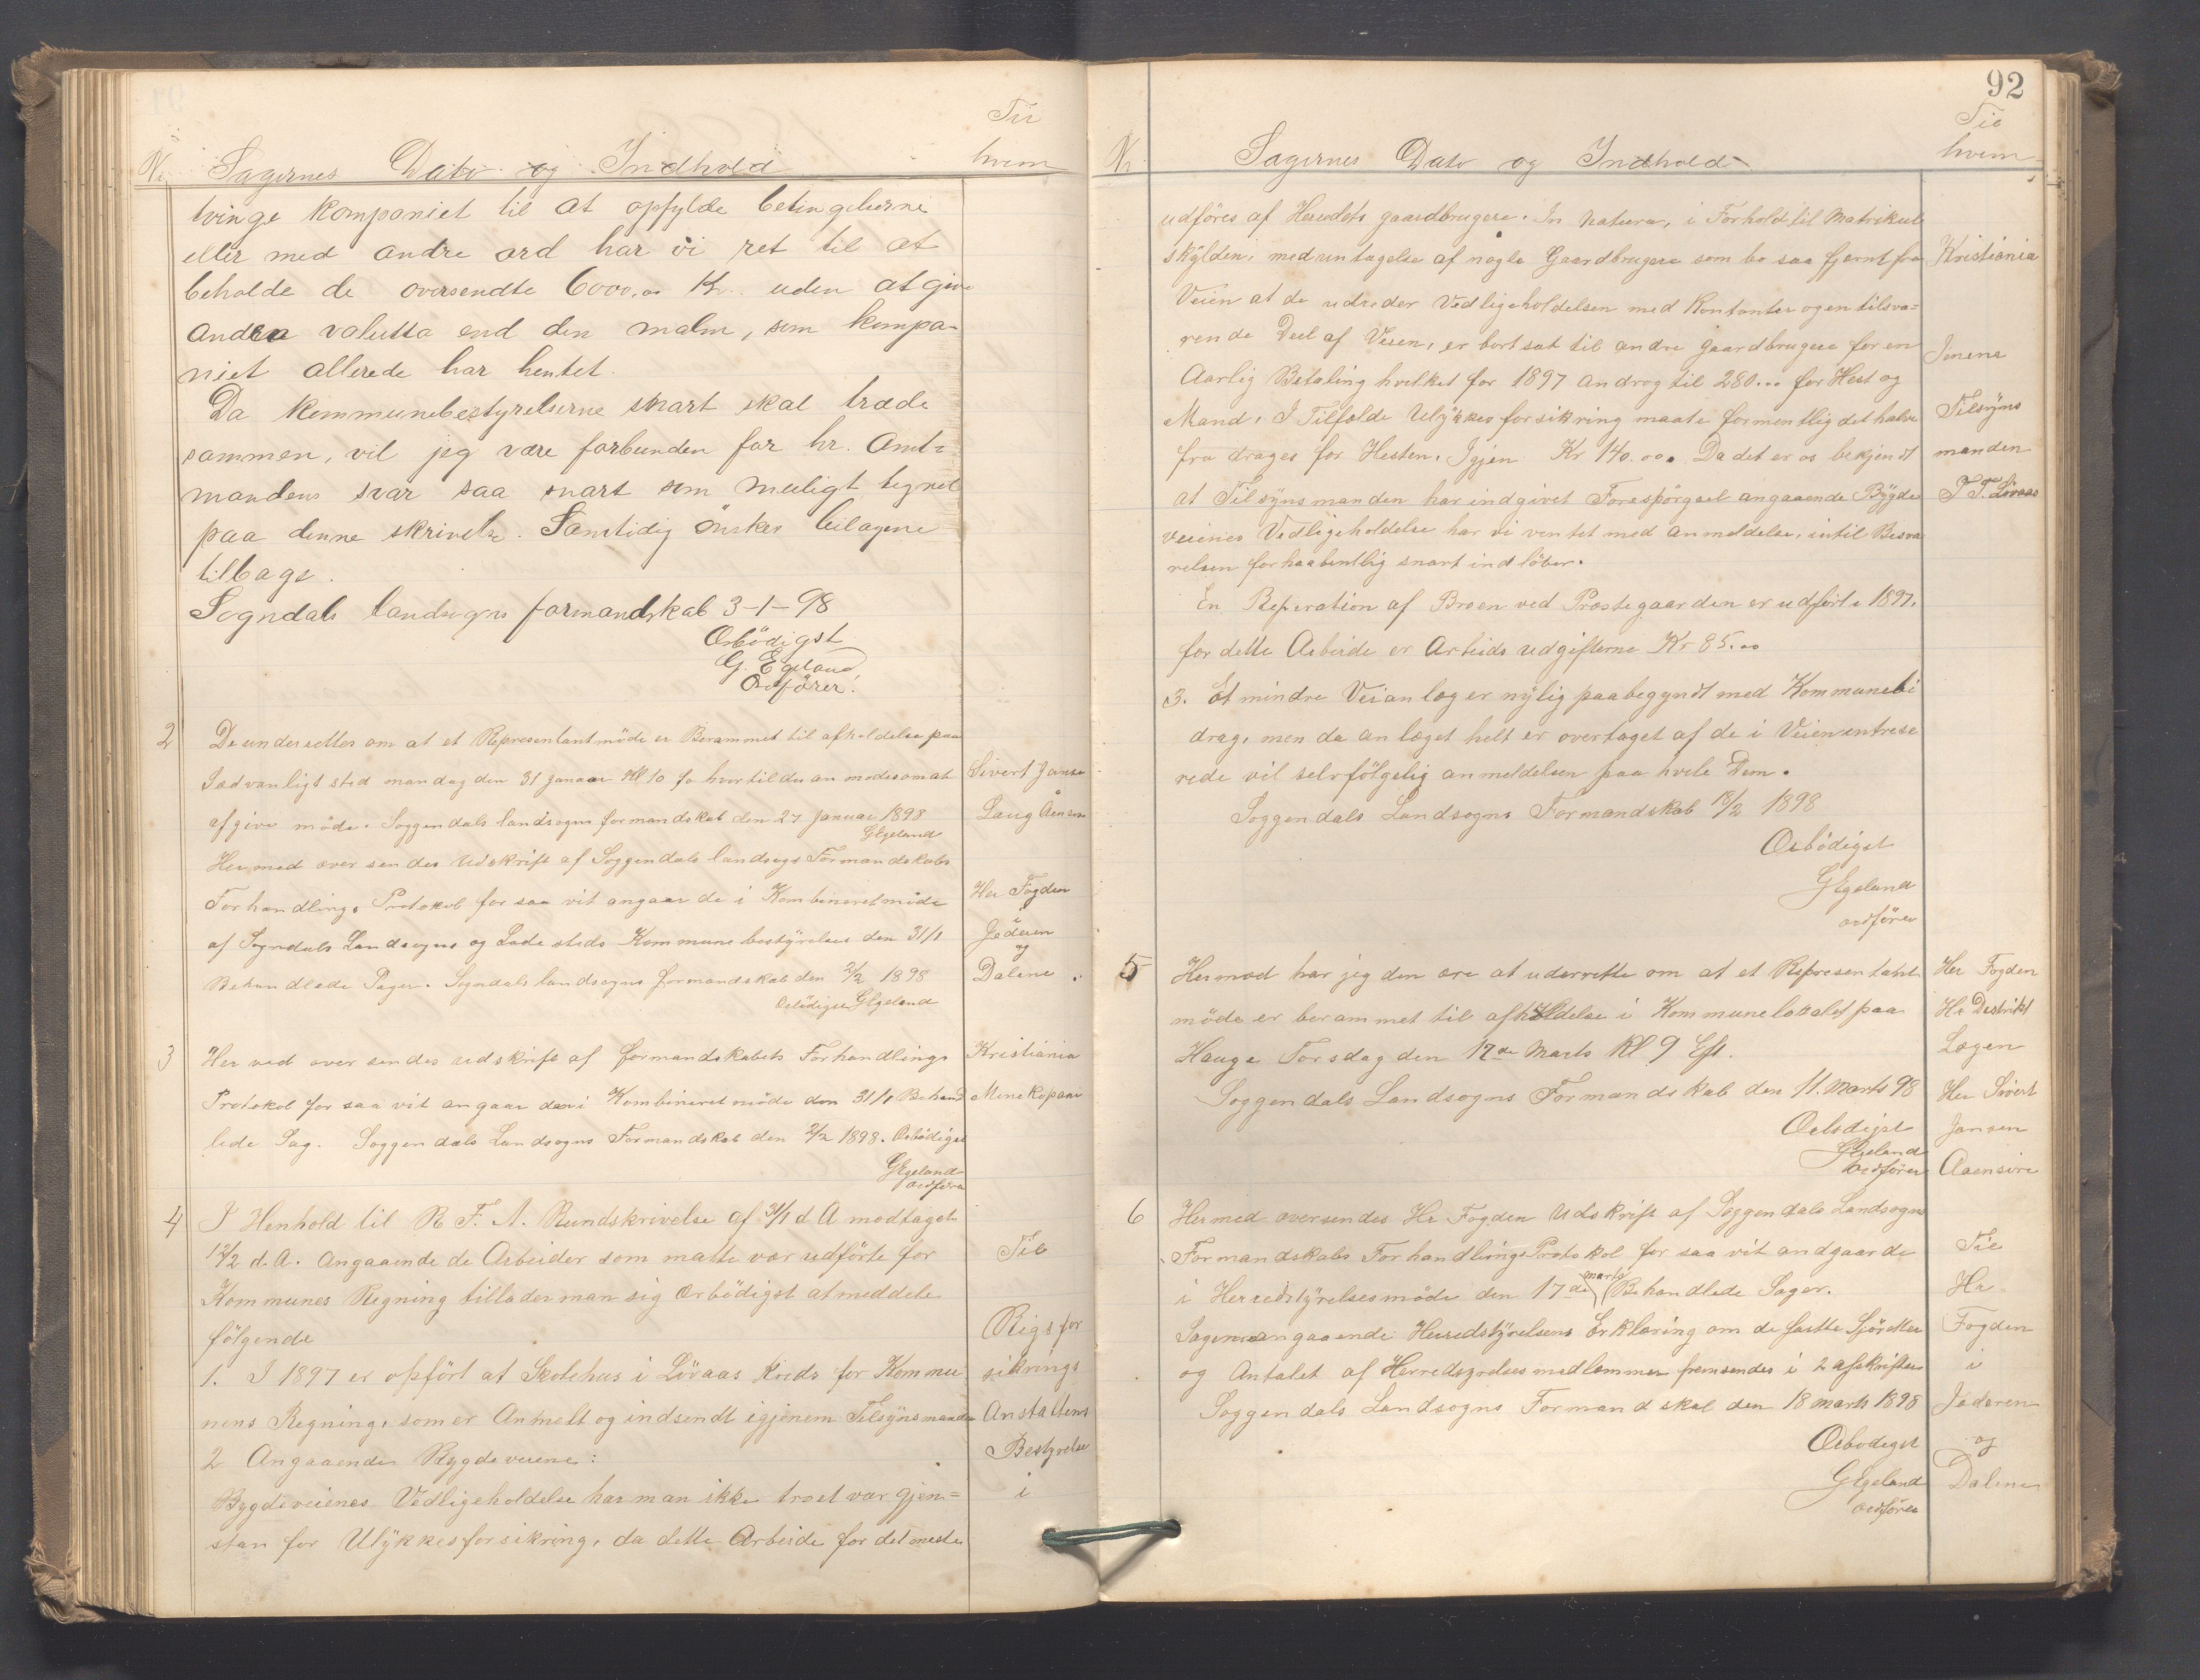 Til
Nr. Sagernes Dato og Indhold hvem
tvinge kompaniet til at opfylde betingelserne
eller med andre ord har vi ret til at
beholde de oversendte 6000,00 Kr. uden at give
andra valutta end den malm, som kompa-
niet allerede har hentet.
Da kommunebestyrelserne snart skal træde
sammen, vil jeg være forbunden for hr. Amt-
mandens svar saa snart som muligt tegnet
paa denne skrivelse. Samtidig önskes bilagene
tilbage.
Sogndals landsogns formandskab 3-1-98
Ærbödigst
G. Egeland
Ordförer.
2 De underrettes om at et Representantmöde er Berammet til afholdelse paa
Sædvanligt sted mandag den 31 Januar Kl 10 fo hvortil du an modes om at
Sivert Janse
afgive möde. Soggendals landsogns formandskab den 27 Januar 1898
Laug Åensire
GEgeland
Hermed over sendes Udskrift af Soggendals landsogs Formandskabs
Forhandlings Protokol for saa vit angaar de i Kombineretmöde
Her Fogden
af Sogndals Landsogns og Lade steds Kommune bestyrelser den 31/1
i Jæderen
og
Behandlede Sager. Sogndals landsogns formandskab den 2/2 1898
Dalene
Ærbödigst GEgeland
3 Her ved over sendes udskrift af formandskabets Forhandlings
Kristiania
Protokol for saa vit angaar den i Kombineret möde den 31/1 Behand
Mine Kopani
lede Sag. Soggendals Landsogns Formandskab den 2/2 1898. Ærbödigst
GEgeland
ordförer
4 I Henhold til R. F. A. Rundskrivelse af 31/1 d A modtaget
12/2 d.A. Angaaende de Arbeider som matte vær udförte for
Til
Kommunes Regning tillader man sig ærbödigst at meddele
fölgende
Rigsfor
1. I 1897 er opfört at Skolehus i Lövaas Kreds for Kommu
sikrings
nens Regning, som er Anmelt og indsendt igjenem Tilsynsmanden
Anstaltens
2 Angaaende Bygdeveiene:
Bestyrelse
Bygdeveienes Vedligeholdelse har man ikke troet var gjen=
i
stan for Ulykkesforsikring, da dette Arbeide for det meste
92
Til
Nr Sagernes Dato og Indhold hvem
udföres af Heredets gaardbrugere. In natura, i Forhold til Matrikul
skylden, med untagelse af nogle Gaardbrugere som bo saa fjernt fra
Kristiania
Veien at de udreder Vedligeholdelsen med Kontanter og en tilsva=
rende Deel af Veien, er bortsat til andre gaardbrugere for en
Imens
Aarlig Betaling hvilket for 1897 androg til 280.00 for Hest og
Mand. I Tilfælde Ulykkesforsikring maate formentlig det halve
Tilsyns
fra drages for Hesten. Igjen Kr 140.00. Da det er os bekjendt
manden
at Tilsynsmanden har indgivet Forespörgsel angaaende Bygde
T. T. Lövaas
veienes Vedligeholdelse har vi ventet med anmeldelse, intil Besva
relsen forhaabentlig snart indlöber.
En Reperation af Broen ved Præstegaarden er udfört i 1897.
for dette Arbeide er Arbeids udgifterne Kr 85.00
3. Et mindre Veianlæg er nylig paabegyndt med Kommunebi
drag, men da anlæget helt er overtaget af de i Veien entrese
rede vil selvfölgelig anmeldelsen paa hvile Dem.
Soggendals Landsogns Formandskab 18/2 1898
Ærbödigst
GEgeland
ordförer
5 Hermed har jeg den ære at underrette om at et Represen tant
Her Fogden
möde er berammet til afholdelse i Kommunelokalet paa
Hr Destrikt
Hauge Torsdag den 17de Marts Kl 9 Eft.
Lægen
Soggendals Landsogns Formandskab den 11. Marts 98
Her Sivert
Ærbödigst
Jansen
GEgeland
ordförer
Aaensire
6 Hermed oversendes Hr Fogden Udskrift af Soggendals Landsogns
Formandskabs Forhandlings Protokol for saa vit andgaar de
Til
i Herredstyrelsesmöde den 17de marts Behandlede Sager.
Hr
Sagerne angaaende Herredstyrelsens Erklæring om de fastte Sjöretter
Fogden
og Antalet af Herredstyrelses medlemmer fremsendes i 2 afskrifter
i
Soggendals Landsogns Formandskab den 18 marts 1898
Jæderen
Ærbodigst
og
GEgeland
Dalene
ordförer